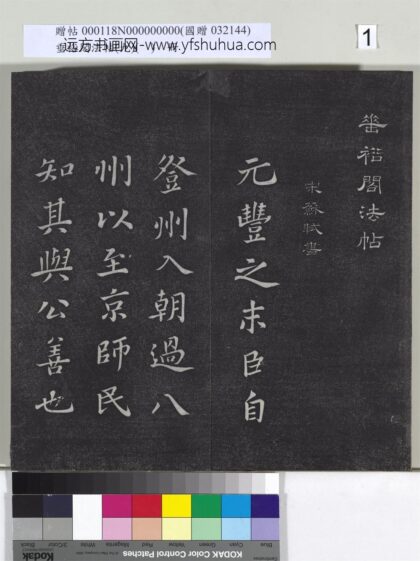 贈帖 000118N000000000(國贈 032144)
远方书画网-www.yfshuhua.com
1
垂裕閣法帖
宋蘇軾書
元豐之末臣自
登州入朝過八
州以至京師民
知其與公善也
KODAK Color Control Patches
Blue Cyan Green Yellow Red Magenta White 3/Color Black
Kodak